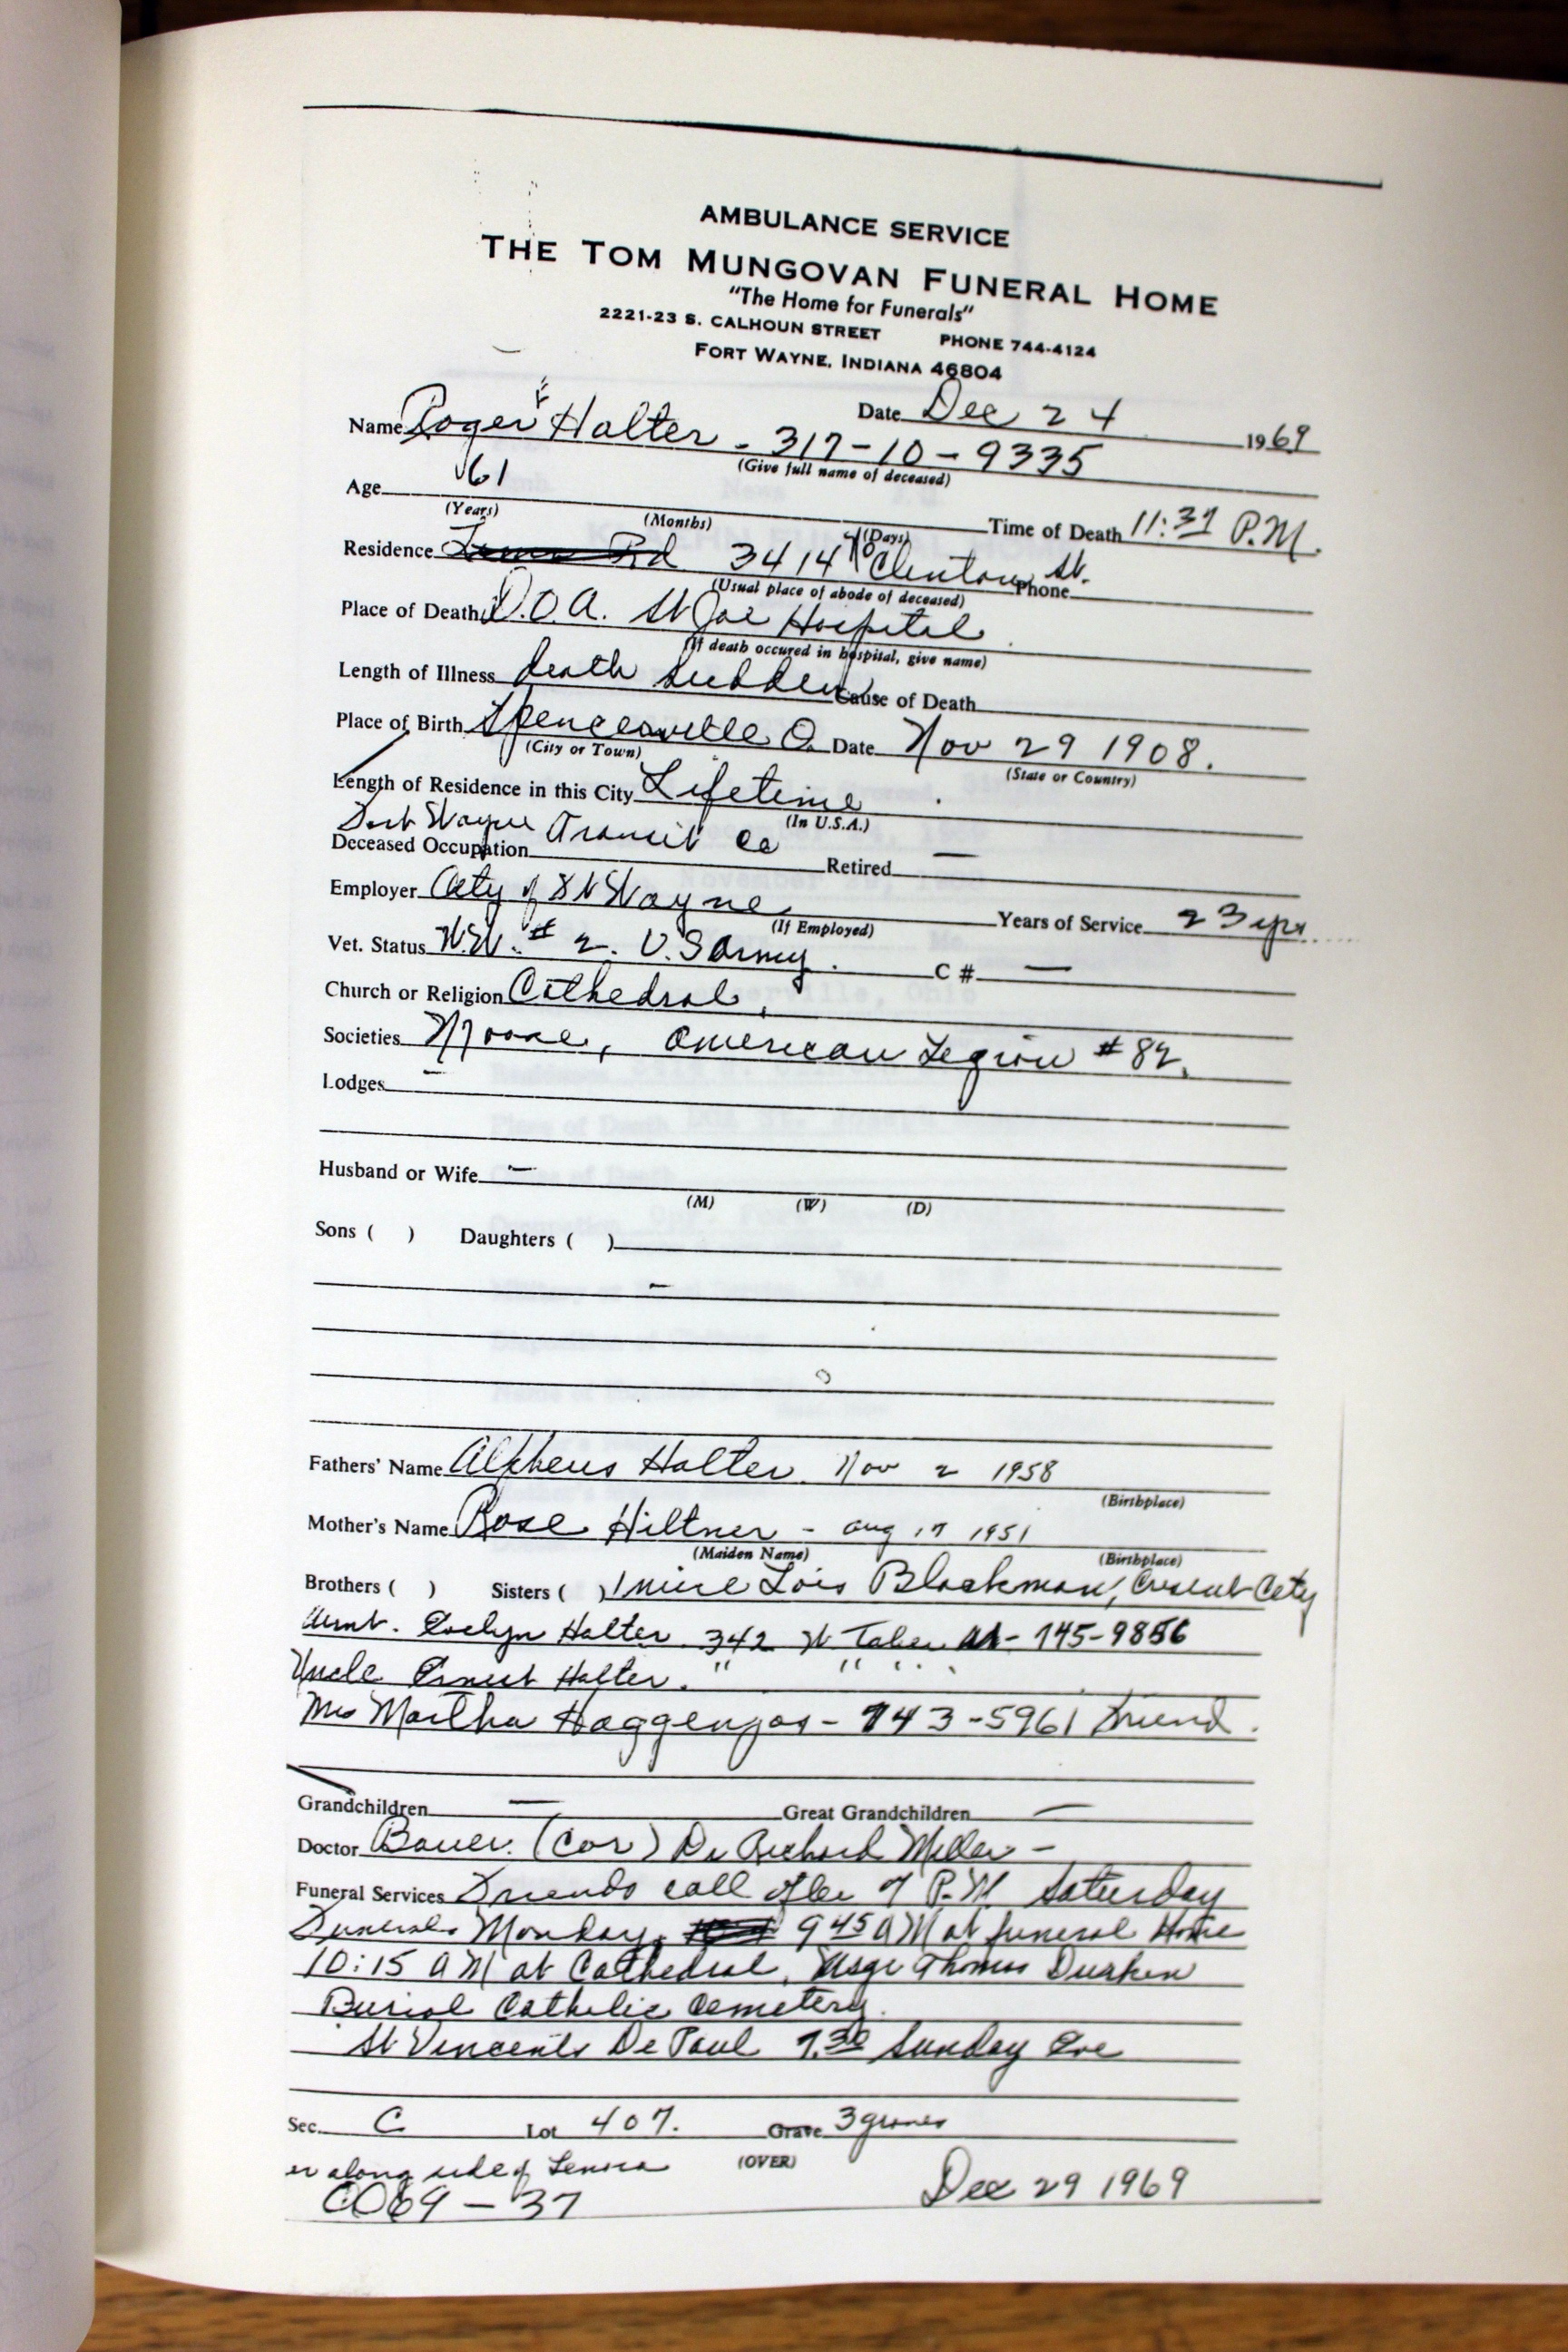 AMBULANCE SERVICE
THE TOM MUNGOVAN FUNERAL HOME
"The Home for Funerals"
2221-23 S. CALHOUN STREET PHONE 744-4124
FORT WAYNE, INDIANA 46804
Date Dec 24 1969
Name Roger F Halter - 317-10-9335
(Give full name of deceased)
Age 61 Time of Death 11:37 P.M.
(Years) (Months) (Days)
Residence 3414 Clinton St. Phone
(Usual place of abode of deceased)
Place of Death D.O.A. St Joe Hospital
(If death occured in hospital, give name)
Length of Illness death sudden Cause of Death
Place of Birth Spencerville O. Date Nov 29 1908.
(City or Town) (State or Country)
Length of Residence in this City Lifetime
(In U.S.A.)
Fort Wayne Transit Co
Deceased Occupation Retired —
Employer City of Ft Wayne Years of Service 23 yrs
(If Employed)
Vet. Status W.W. # 2. U.S Army. C # —
Church or Religion Cathedral,
Societies Moose, American Legion # 82.
Lodges —
Husband or Wife —
(M) (W) (D)
Sons ( ) Daughters ( )
—
Fathers' Name Alpheus Halter. Nov 2 1958
(Birthplace)
Mother's Name Rose Hiltner - Aug 17 1951
(Maiden Name) (Birthplace)
Brothers ( ) Sisters ( ) 1 niece Lois Blackman, Cresent City
Aunt. Evelyn Halter 342 W Taber 745-9856
Uncle Ernest Halter. " " " "
Mrs Martha Haggenjos - 743-5961 Friend.
Grandchildren — Great Grandchildren —
Doctor Bauer. (Cor) Dr Richard Miller -
Funeral Services Friends call after 7 P.M Saturday
Funeral Monday, 9 45 A M at funeral Home
10:15 A M at Cathedral, Msgr Thomas Durkin
Burial Catholic Cemetery.
St Vincents De Paul 7.30 Sunday Eve
Sec. C Lot 407. Grave 3 graves
along side of (OVER)
CO69 - 37 Dec 29 1969